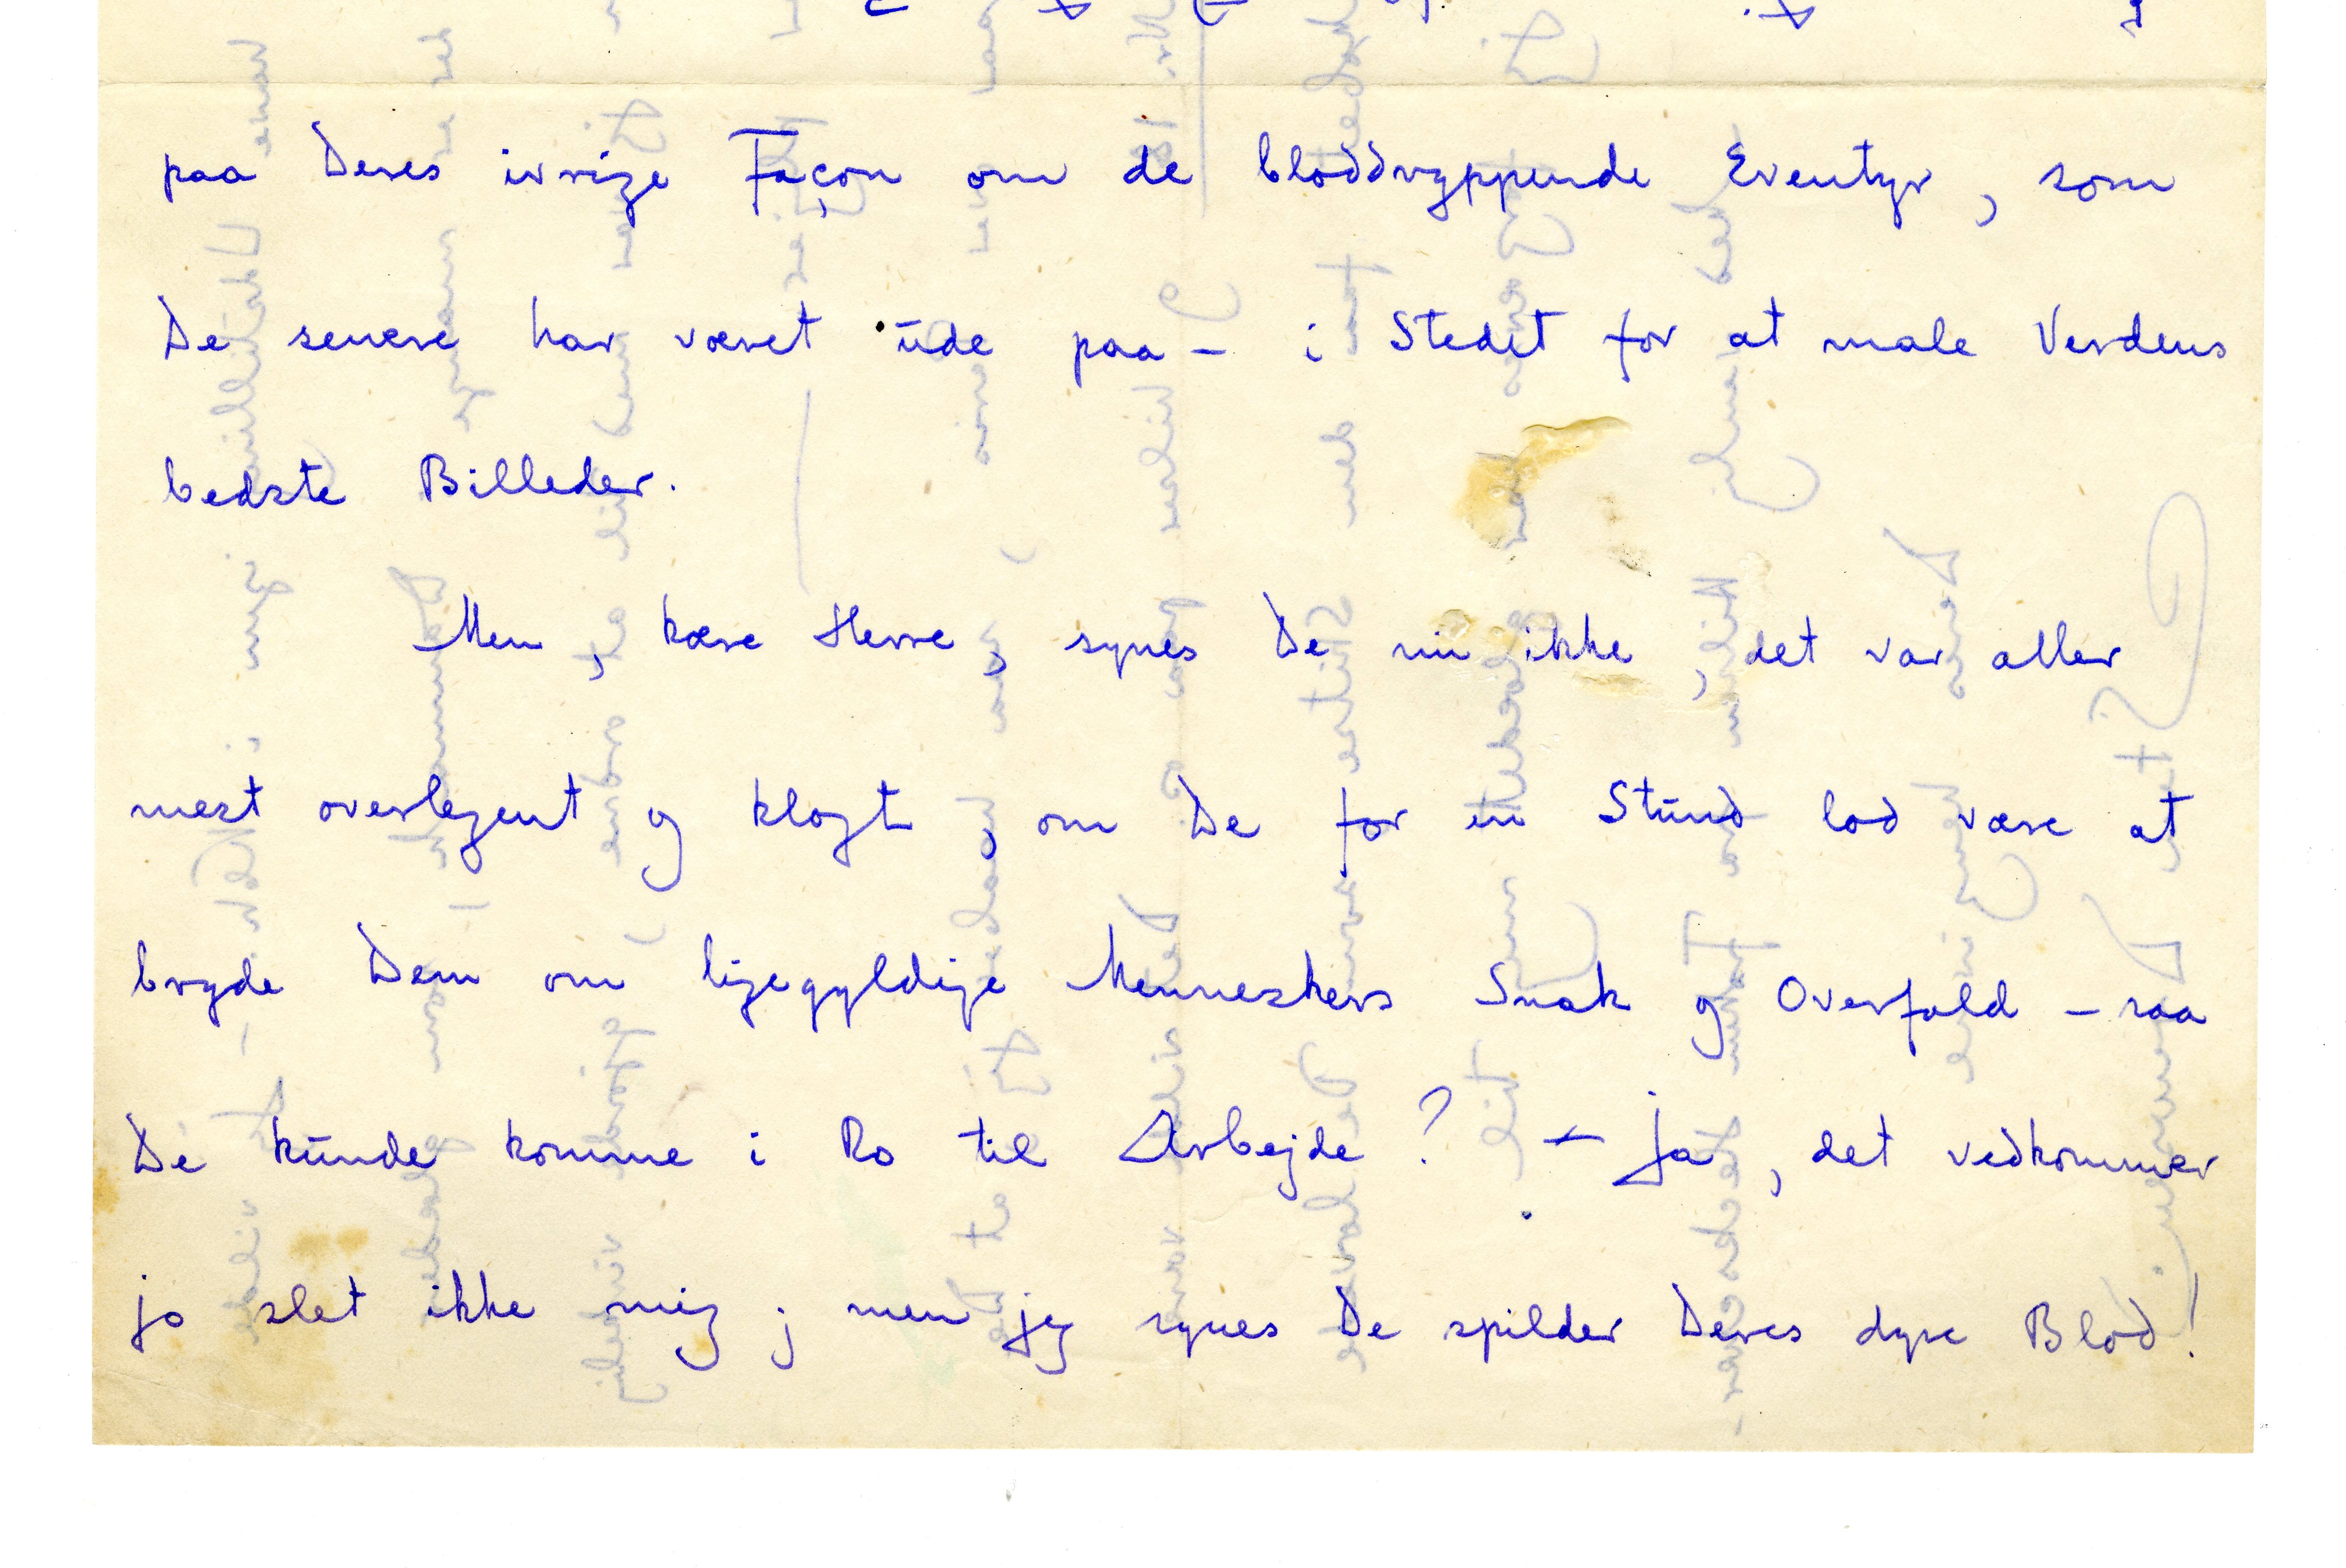 paa Deres ivrige Façon om de bloddryppende Eventyr, som
De senere har været ude paa – i Stedet for at male Verdens
bedste Billeder.
Men, kære Herre, synes De nu ikke, det var aller
mest overlegent og klogt, om De for en Stund lod være at
bryde Dem om ligegyldige Menneskers Snak og Overfald – saa
De kunde komme i Ro til Arbejde? – Ja, det vedkommer
jo slet ikke mig; men jeg synes De spilder Deres dyre Blod!